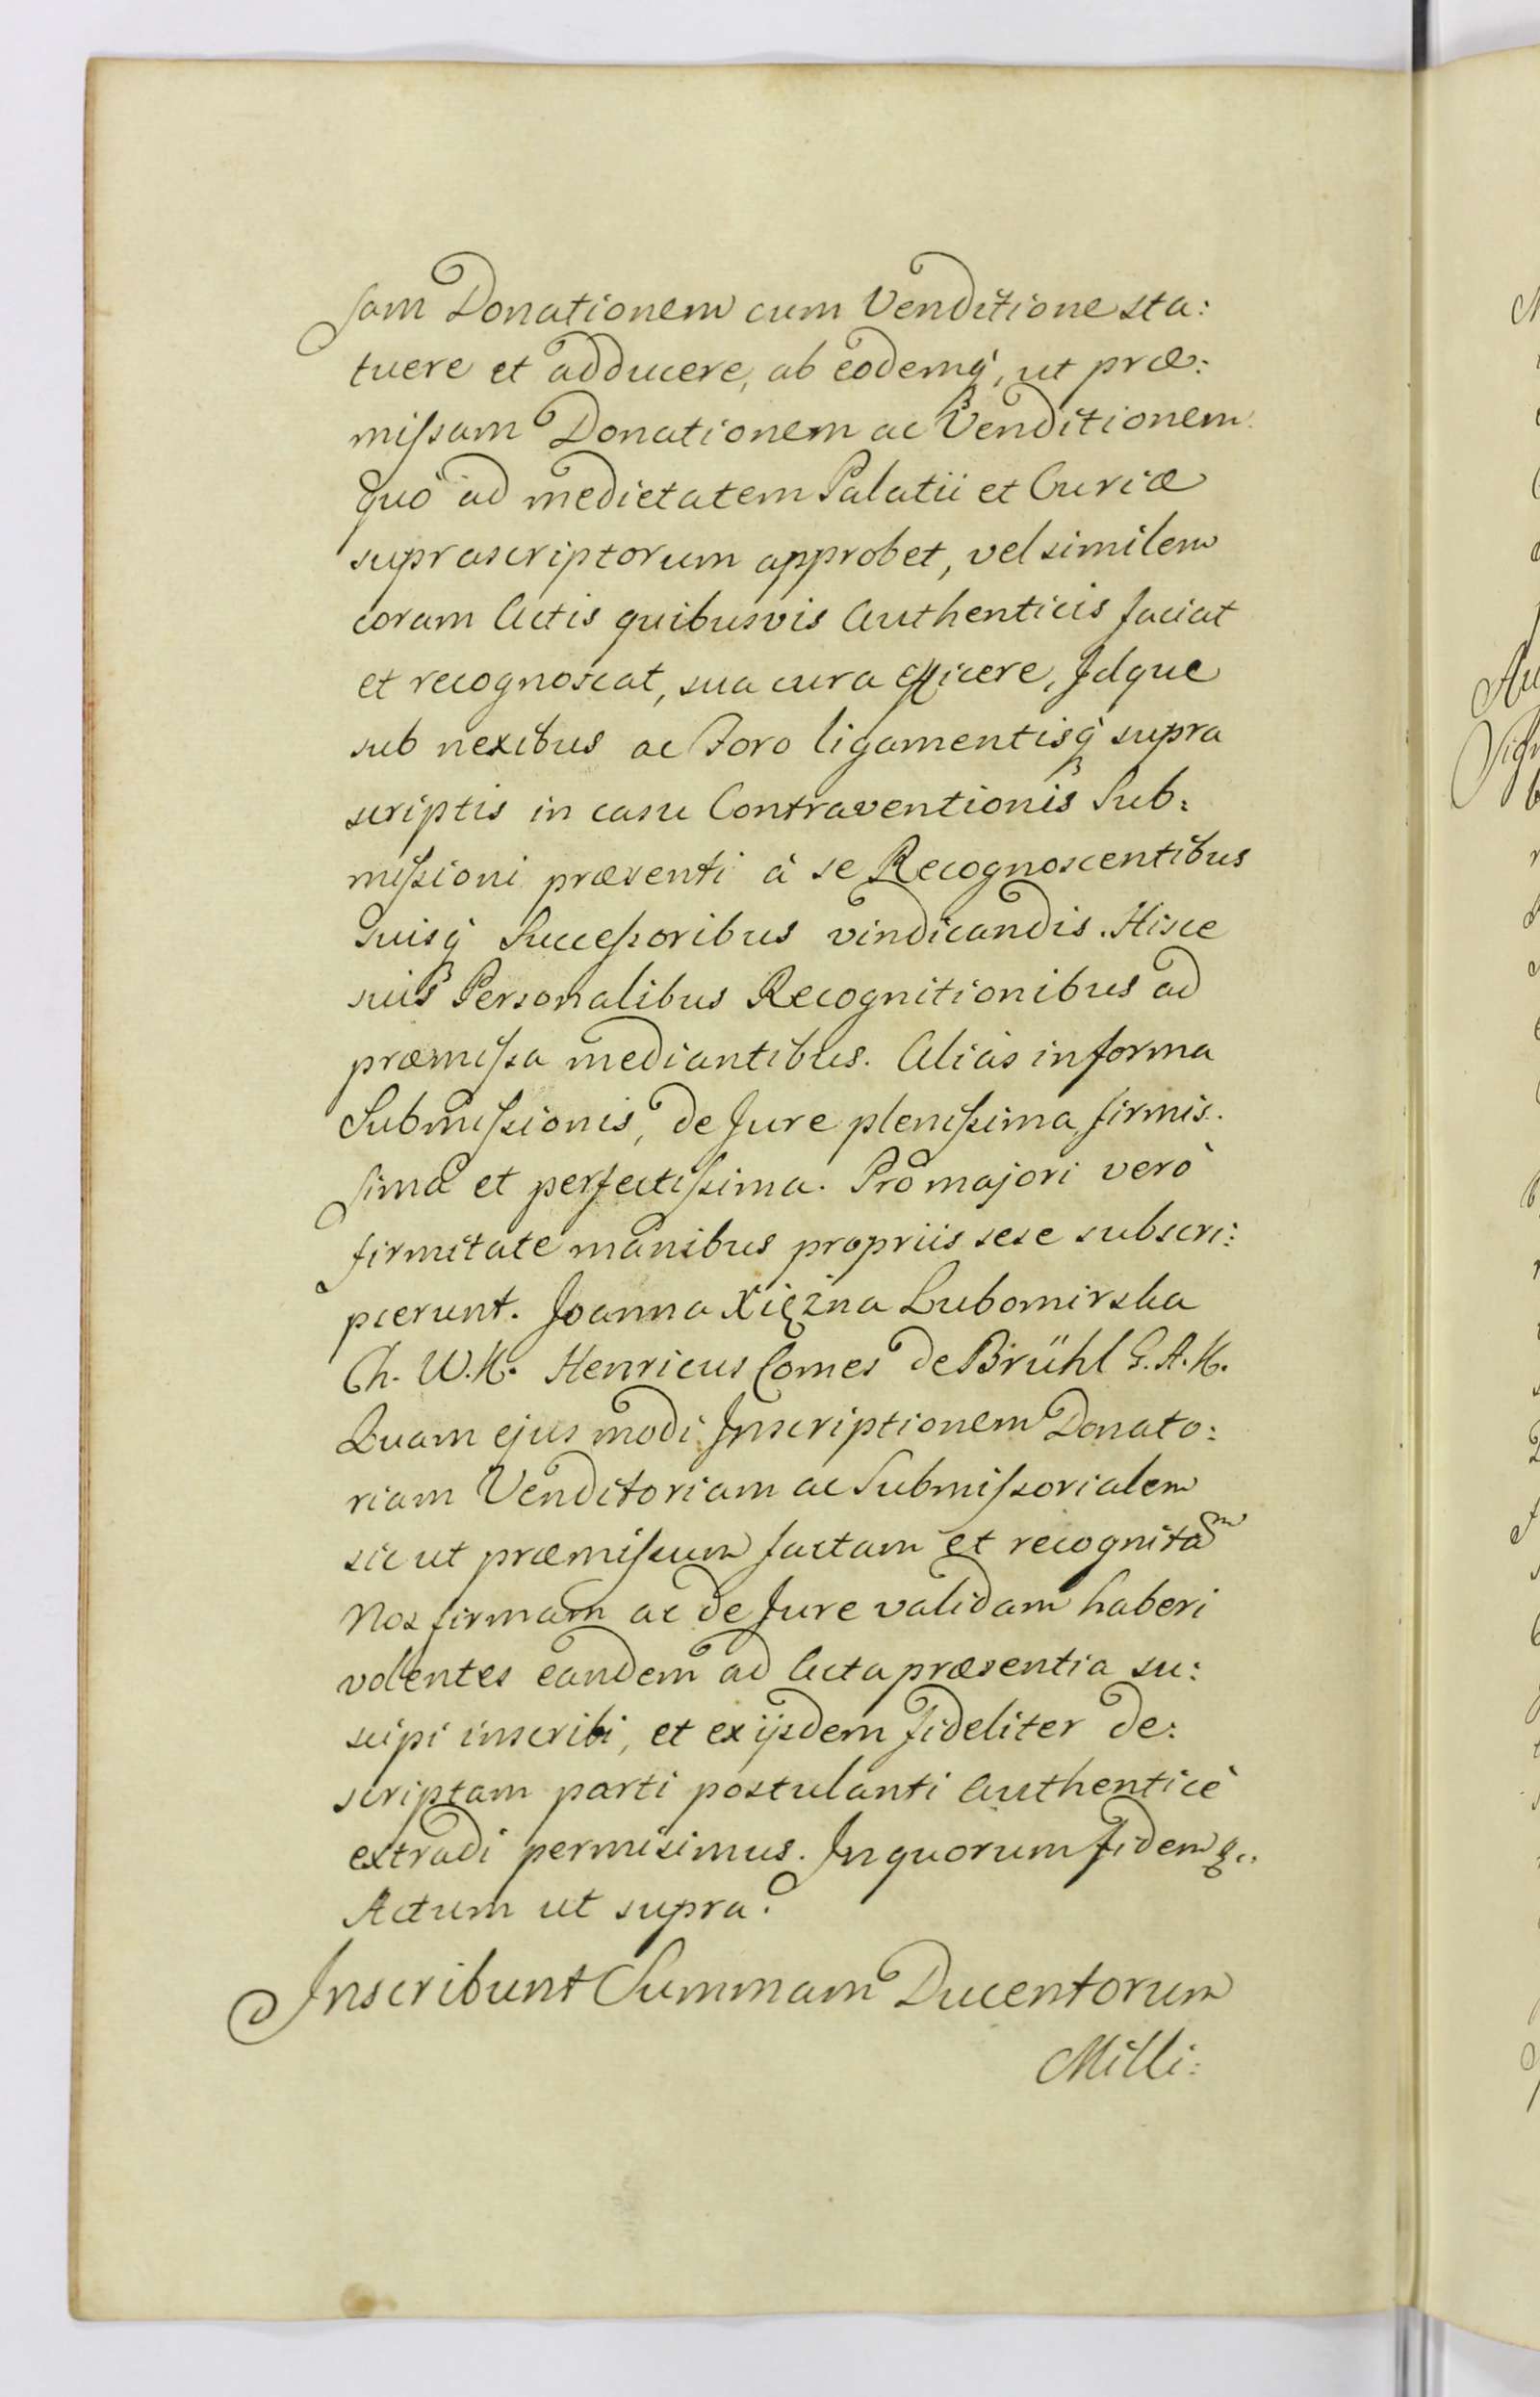 sam Donationem cum Venditione sta:
tuere et adducere, ab eodemq́, ut præ:
missam Donationem ac Venditionem
quò ad medietatem Palatii et Curiæ
suprascriptorum approbet, vel similem
coram Actis quibusvis Authenticis faciat
et recognoscat, sua cura efficere, Idque
sub nexibus ac Foro ligamentisq́ supra
scriptis in casu Contraventionis Sub:
missioni præsenti à se Recognoscentibus
suisq́ Successoribus vindicandis. Hisce
suis Personalibus Recognitionibus ad
præmissa mediantibus. Aliàs in forma
Submissionis, de Jure plenissima, firmis:
sima et perfectissima. Pro majori verò
firmitate manibus propriis sese subscri:
pserunt. Joanna Xiężna Lubomirska
Ch. W. K. Henricus Comes de Brühl G. A. K.
Quam ejus modi Inscriptionem Donato:
riam Venditoriam ac Submissorialem
sic ut præmissum factam et recognitam
Nos firmam ac de Jure validam haberi
volentes eandem ad Acta præsentia su:
scipi inscribi, et ex ijsdem fideliter de:
scriptam parti postulanti Authenticè
extradi permisimus. In quorum fidem &..
Actum ut supra.
Inscribunt Summam Ducentorum
Milli: